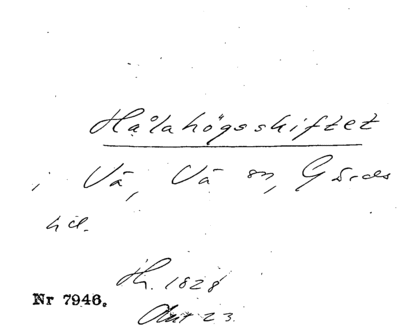 Hålahögsskiftet
i Vä, Vä sn, Gärds
hd.
Th. 1828
Akt 23.
Nr 7946.